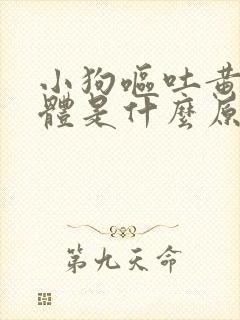 小狗嘔吐黃
體是什麼原
第九天命